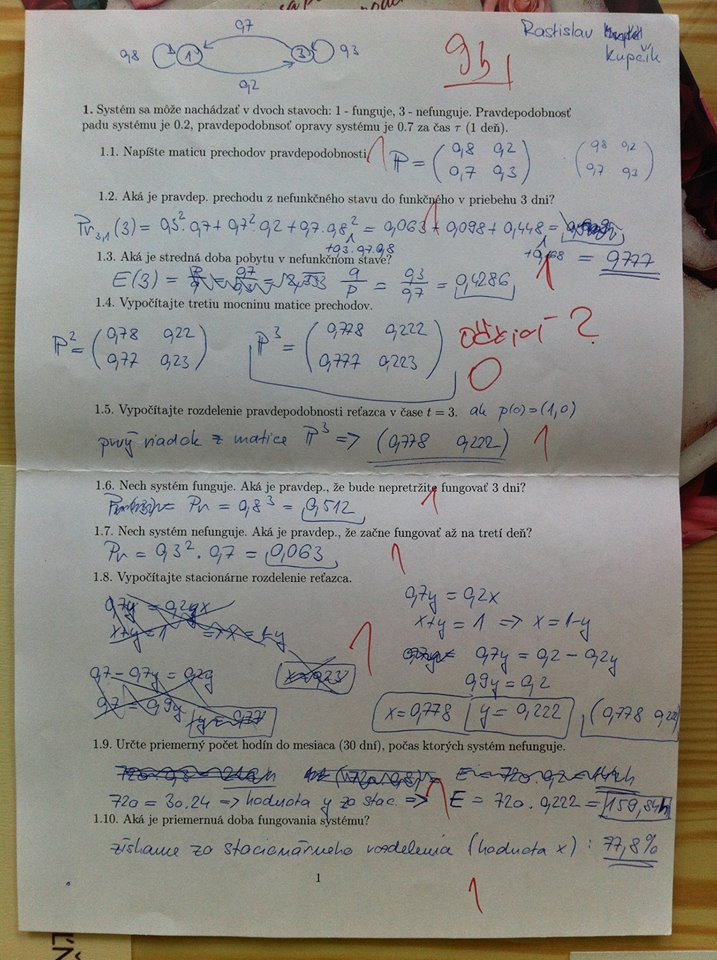 0,7
Rastislav
Kupčík
0,8 1 3 0,3
9b
0,2
1. Systém sa môže nachádzať v dvoch stavoch: 1 - funguje, 3 - nefunguje. Pravdepodobnosť
padu systému je 0.2, pravdepodobnsoť opravy systému je 0.7 za čas τ (1 deň).
1.1. Napíšte maticu prechodov pravdepodobnosti. 1
P = (0,8 0,2
0,7 0,3)
(0,8 0,2
0,7 0,3)
1.2. Aká je pravdep. prechodu z nefunkčného stavu do funkčného v priebehu 3 dni?
Pr3,1(3) = 0,3² · 0,7 + 0,7² · 0,2 + 0,7 · 0,8² = 0,063 + 0,098 + 0,448 =
+0,3 · 0,7 · 0,8
+0,168
= 0,777
1.3. Aká je stredná doba pobytu v nefunkčnom stave?
E(3) = q/p = 0,3/0,7 = 0,4286 1
1.4. Vypočítajte tretiu mocninu matice prechodov.
P² = (0,78 0,22
0,77 0,23)
P³ = (0,778 0,222
0,777 0,223)
?
0
1.5. Vypočítajte rozdelenie pravdepodobnosti reťazca v čase t = 3. ak p(0) = (1,0)
prvý riadok z matice P³ => (0,778 0,222) 1
1.6. Nech systém funguje. Aká je pravdep., že bude nepretržite fungovať 3 dni?
Pr = 0,8³ = 0,512 1
1.7. Nech systém nefunguje. Aká je pravdep., že začne fungovať až na tretí deň?
Pr = 0,3² · 0,7 = 0,063 1
1.8. Vypočítajte stacionárne rozdelenie reťazca.
0,7y = 0,2x
x+y = 1 => x = 1-y
0,7y = 0,2 - 0,2y
0,9y = 0,2
x = 0,778 y = 0,222 (0,778 0,222)
1
1.9. Určte priemerný počet hodín do mesiaca (30 dní), počas ktorých systém nefunguje.
720 = 30.24 => hodnota y zo stac. => E = 720 . 0,222 = 159,84h
1
1.10. Aká je priemernuá doba fungovania systému?
získame zo stacionárneho rozdelenia (hodnota x) : 77,8%
1
1